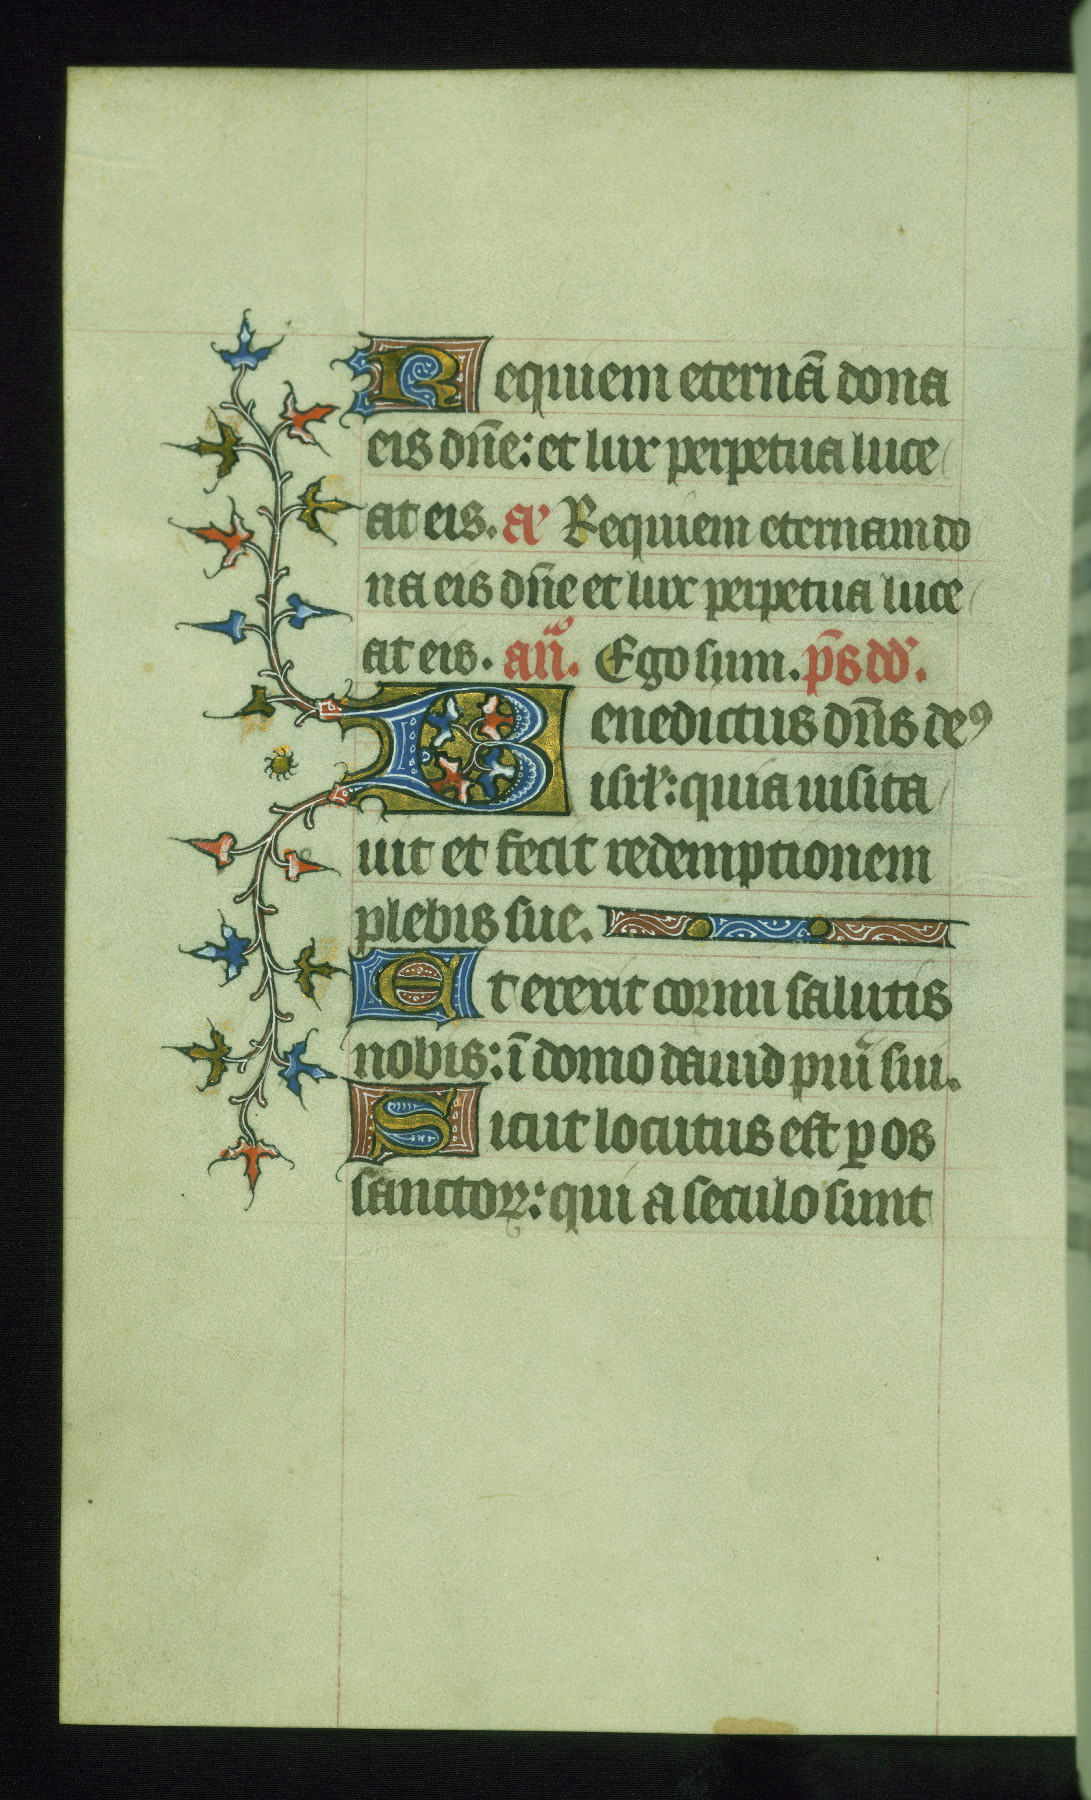 Requiem eternā dona
eis dn̄e: et lux perpetua luce
at eis. a᷒ Requiem eternam do
na eis dn̄e et lux perpetua luce
at eis. an̄. Ego sum. ps̄ dd̄.
Benedictus dn̄s deꝰ
isrl̄: quia uisita
uit et fecit redemptionem
plebis sue.
Et erexit cornu salutis
nobis: ī domo dauid pīu sui.
Sicut locutus est ꝑ os
sanctoꝝ: qui a seculo sunt